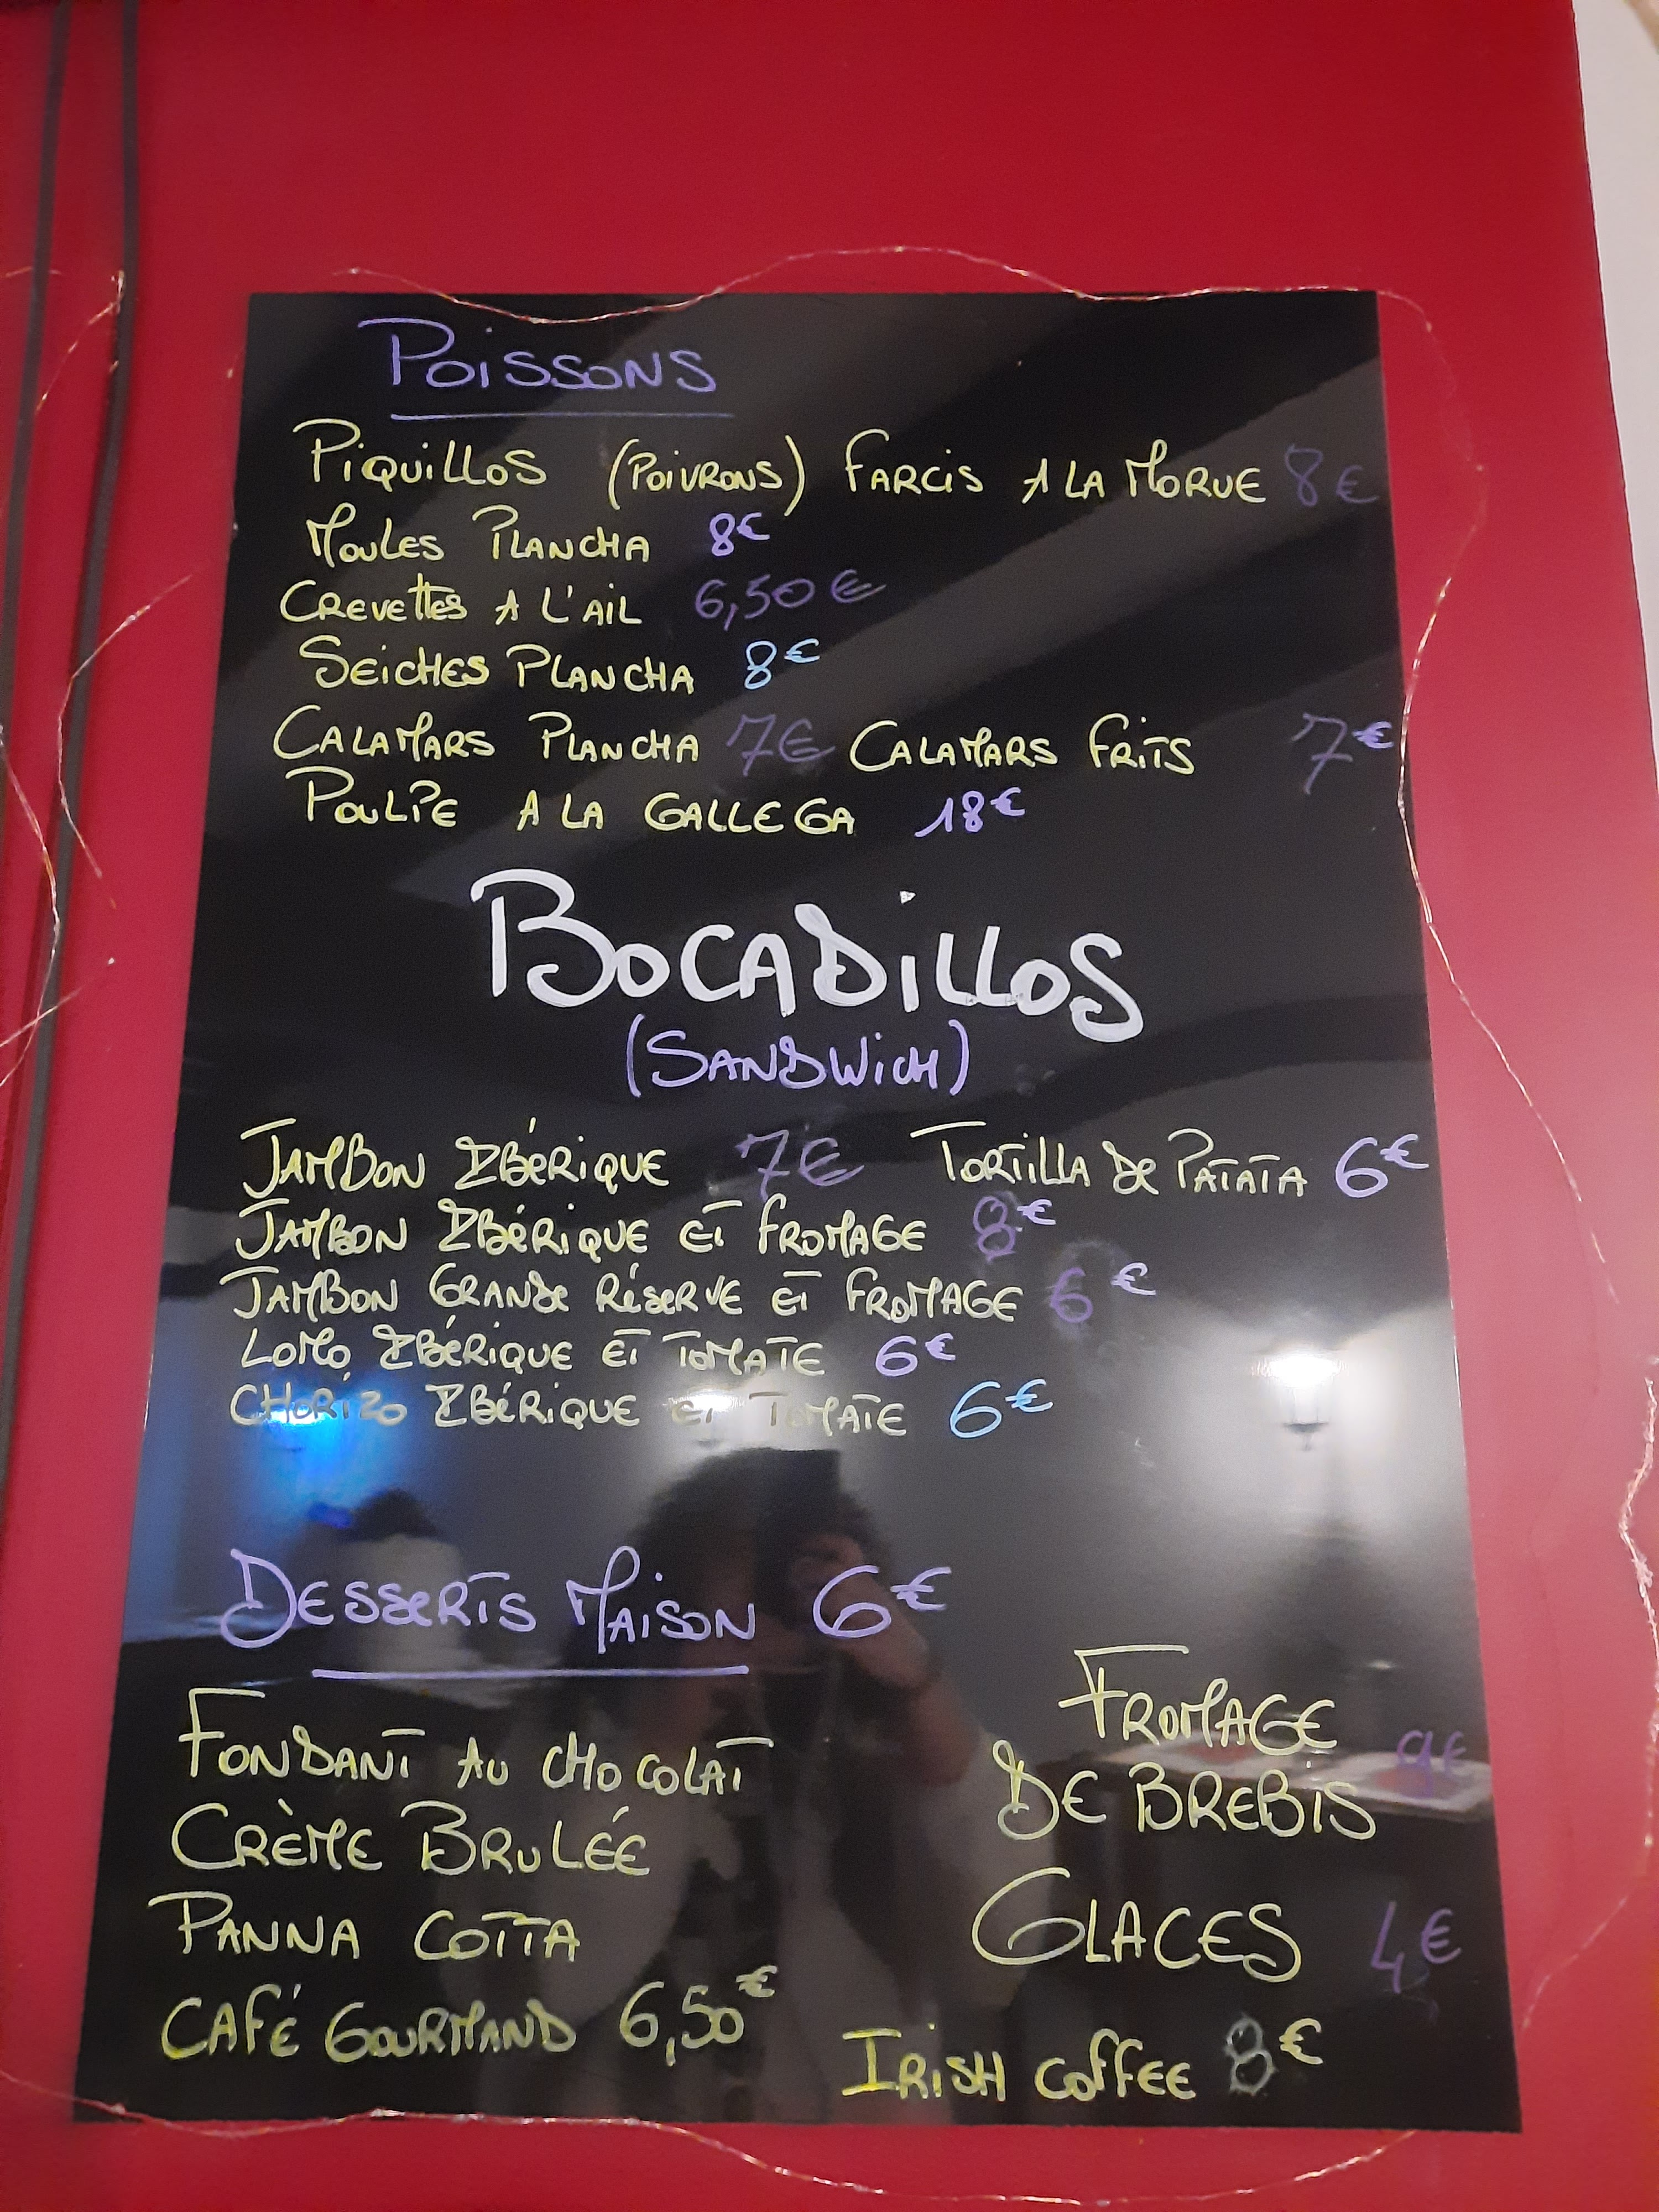 POISSONS
PIQUILLOS (POIVRONS) FARCIS A LA MORUE 8€
MOULES PLANCHA 8€
CREVETTES A L'AIL 6,50€
SEICHES PLANCHA 8€
CALAMARS PLANCHA 7€ CALAMARS FRITS 7€
POULPE A LA GALLEGA 18€
BOCADILLOS
(SANDWICH)
JAMBON IBÉRIQUE 7€ TORTILLA DE PATATA 6€
JAMBON IBÉRIQUE ET FROMAGE 8€
JAMBON GRANDE RÉSERVE ET FROMAGE 6€
LOMO IBÉRIQUE ET TOMATE 6€
CHORIZO IBÉRIQUE ET TOMATE 6€
DESSERTS MAISON 6€
FONDANT AU CHOCOLAT
CRÈME BRULÉE
PANNA COTTA
CAFÉ GOURMAND 6,50€
FROMAGE
DE BREBIS 9€
GLACES 4€
IRISH COFFEE 8€